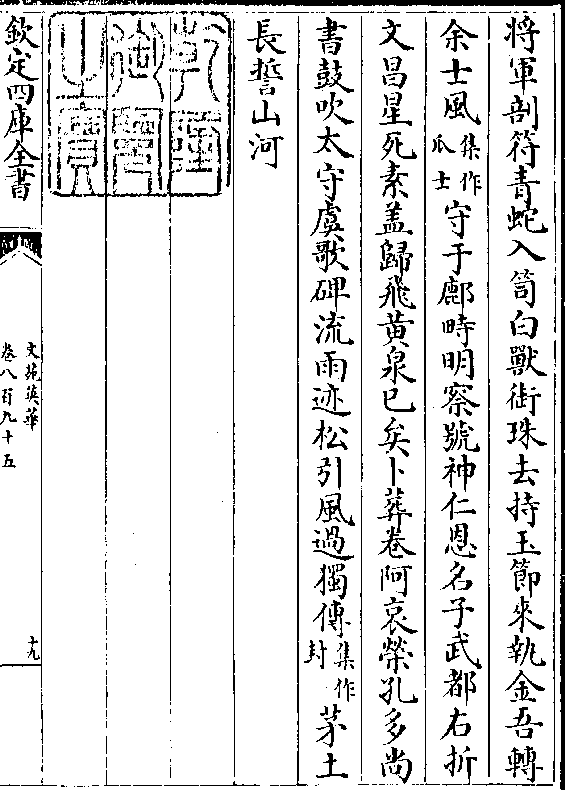 將軍剖符青蛇入笥白獸銜珠去持玉節來執金吾轉
余士風集作瓜士守于鄜時明察號神仁恩名子武都右折
文昌星死素盖歸飛黄泉已矣卜葬卷阿哀榮孔多尚
書鼓吹太守虞歌碑流雨迹松引風過獨傳集作封茅土
長誓山河
乾隆
御覽
之寶
欽定四庫全書
文苑英華
卷八百九十五
十九